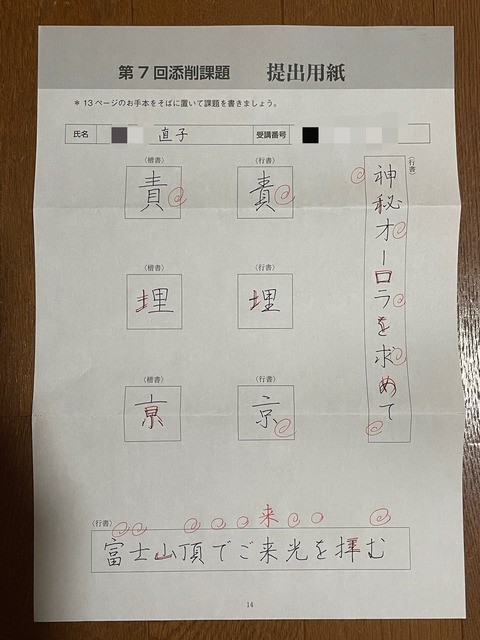 第7回添削課題 提出用紙
＊13ページのお手本をそばに置いて課題を書きましょう。
氏名 直子 受講番号
〈楷書〉 〈行書〉 〈行書〉
責 責
神秘オーロラを求めて
〈楷書〉 〈行書〉
埋 埋
〈楷書〉 〈行書〉
京 京
来
〈行書〉
富士山頂でご来光を拝む
14